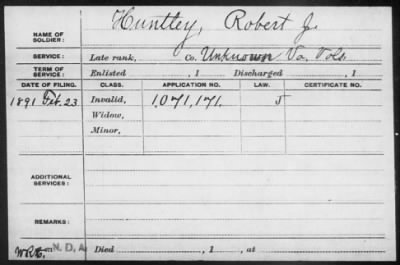 NAME OF SOLDIER: Huntley, Robert J.
SERVICE: Late rank, Co. Unknown Va. Vols
TERM OF SERVICE: Enlisted , 1 Discharged , 1
DATE OF FILING. CLASS. APPLICATION NO. LAW. CERTIFICATE NO.
1891 Feb. 23 Invalid, 1,071,171. J
Widow,
Minor,
ADDITIONAL SERVICES:
REMARKS:
N.D.A. Died , 1 , at